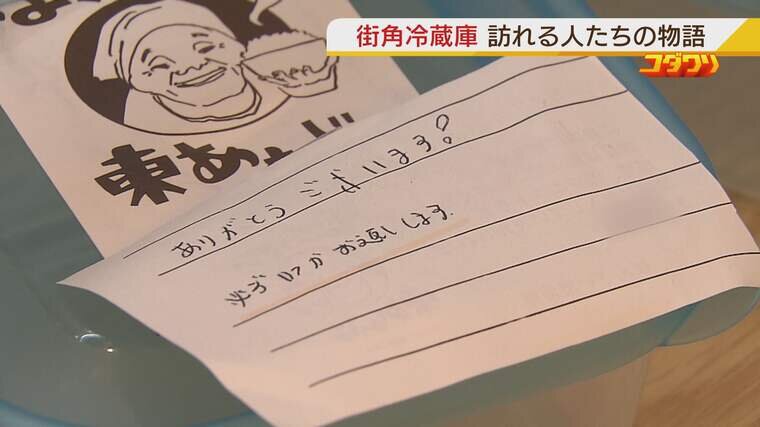 街角冷蔵庫 訪れる人たちの物語
コダワリ
ありがとう ございます!
必ず いつか お返しします.